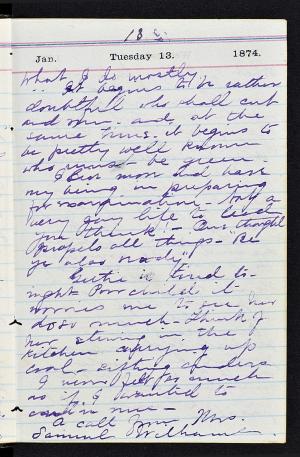 Jan. Tuesday 13. 1874.
what I do mostly.
It begins to be rather
doubtful who shall cut
and run - and, at the
same time, it begins to
be pretty well known
who must be
my being in preparing
for examination - Not a
very gay life to lead
you think! - One thought
all things - "Be
ye also ready"
is tired to-
night Poor child it
worries me to see her
do so much. Think of
her in the
kitchen up
coal - sifting cinders
I never felt so much
as if I wanted to
A call from Mrs.
Samuel Williams.